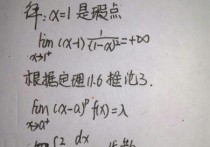 解:x=1是瑕点
lim x→1⁺ (x-1) 1/(1-x)² = +∞
根据定理11.6推论3.
lim x→a⁺ (x-a)ᵖ f(x) = λ
∫ 2 dx